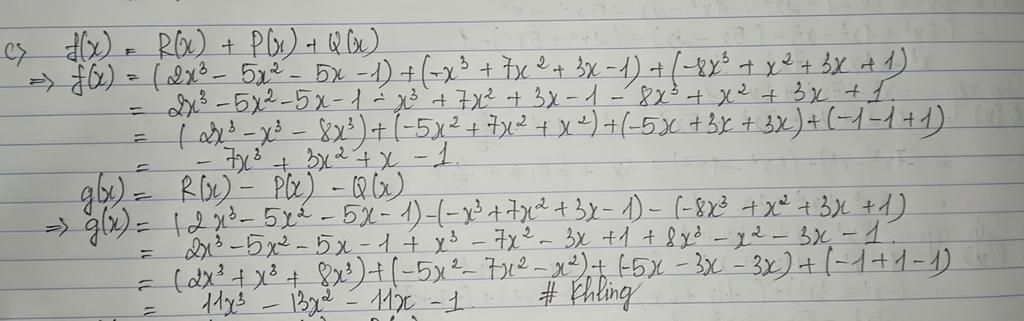 c) f(x) = R(x) + P(x) + Q(x)
=> f(x) = (2x³ - 5x² - 5x - 1) + (-x³ + 7x² + 3x - 1) + (-8x³ + x² + 3x + 1)
= 2x³ - 5x² - 5x - 1 - x³ + 7x² + 3x - 1 - 8x³ + x² + 3x + 1
= (2x³ - x³ - 8x³) + (-5x² + 7x² + x²) + (-5x + 3x + 3x) + (-1 - 1 + 1)
= - 7x³ + 3x² + x - 1.
g(x) = R(x) - P(x) - Q(x)
=> g(x) = (2x³ - 5x² - 5x - 1) - (-x³ + 7x² + 3x - 1) - (-8x³ + x² + 3x + 1)
= 2x³ - 5x² - 5x - 1 + x³ - 7x² - 3x + 1 + 8x³ - x² - 3x - 1.
= (2x³ + x³ + 8x³) + (-5x² - 7x² - x²) + (-5x - 3x - 3x) + (-1 + 1 - 1)
= 11x³ - 13x² - 11x - 1 # Khling